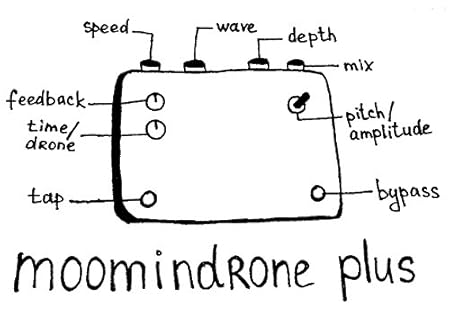 speed
wave
depth
mix
feedback
time/
drone
pitch/
amplitude
tap
bypass
moomindrone plus